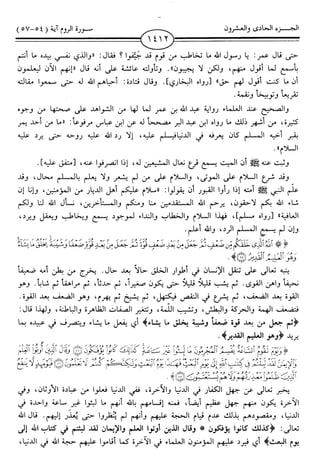 الجزء الحادى والعشرون
١٤١٢
سورة الروم آية (٥٤-٥٧)
حتى قال عمر: يا رسول الله ما تخاطب من قوم قد جَيَّفوا؟ فقال: «والذي نفسي بيده ما أنتم
بأسمع لما أقول منهم، ولكن لا يجيبون». وتأولته عائشة على أنه قال «إنهم الآن ليعلمون
أن ما كنت أقول لهم حق» [رواه البخاري]. وقال قتادة: أحياهم الله له حتى سمعوا مقالته
تقريعاً وتوبيخاً ونقمة.
والصحيح عند العلماء رواية عبد الله بن عمر لما لها من الشواهد على صحتها من وجوه
كثيرة، من أشهر ذلك ما رواه ابن عبد البر مصححاً له عن ابن عباس مرفوعاً: «ما من أحد يمر
بقبر أخيه المسلم كان يعرفه في الدنيا فيسلم عليه، إلا رد الله عليه روحه حتى يرد عليه
السلام».
وثبت عنه ﷺ أن الميت يسمع قرع نعال المشيعين له، إذا انصرفوا عنه، [متفق عليه].
وقد شرع السلام على الموتى، والسلام على من لم يشعر ولا يعلم بالمسلم محال، وقد
علّم النبي ﷺ أمته إذا رأوا القبور أن يقولوا: «سلام عليكم أهل الديار من المؤمنين، وإنا إن
شاء الله بكم لاحقون، يرحم الله المستقدمين منا ومنكم والمستأخرين، نسأل الله لنا ولكم
العافية» [رواه مسلم]، فهذا السلام والخطاب والنداء لموجود يسمع ويخاطب ويعقل ويرد،
وإن لم يسمع المسلم الرد، والله أعلم.
﴿ ۞ اللَّهُ الَّذِي خَلَقَكُم مِّن ضَعْفٍ ثُمَّ جَعَلَ مِنۢ بَعْدِ ضَعْفٍ قُوَّةً ثُمَّ جَعَلَ مِنۢ بَعْدِ قُوَّةٍ ضَعْفًا وَشَيْبَةً يَخْلُقُ مَا يَشَاءُ
وَهُوَ الْعَلِيمُ الْقَدِيرُ ﴾.
ينبه تعالى على تنقل الإنسان في أطوار الخلق حالاً بعد حال. يخرج من بطن أمه ضعيفاً
نحيفاً واهن القوى. ثم يشب قليلاً قليلاً حتى يكون صغيراً، ثم حدثاً، ثم مراهقاً ثم شاباً. وهو
القوة بعد الضعف، ثم يشرع في النقص فيكتهل، ثم يشيخ ثم يهرم، وهو الضعف بعد القوة.
فتضعف الهمة والحركة والبطش، وتشيب اللّمة، وتتغير الصفات الظاهرة والباطنة، ولهذا قال:
﴿ثم جعل من بعد قوة ضعفاً وشيبة يخلق ما يشاء﴾ أي يفعل ما يشاء ويتصرف في عبيده بما
يريد ﴿وهو العليم القدير﴾.
﴿ وَيَوْمَ تَقُومُ السَّاعَةُ يُقْسِمُ الْمُجْرِمُونَ مَا لَبِثُوا غَيْرَ سَاعَةٍ كَذَٰلِكَ كَانُوا يُؤْفَكُونَ وَقَالَ الَّذِينَ أُوتُوا الْعِلْمَ
يخبر تعالى عن جهل الكفار في الدنيا والآخرة، ففي الدنيا فعلوا من عبادة الأوثان، وفي
الآخرة يكون منهم جهل عظيم أيضاً، فمنه إقسامهم بالله أنهم ما لبثوا غير ساعة واحدة في
الدنيا، ومقصودهم بذلك عدم قيام الحجة عليهم وأنهم لم يُنظروا حتى يُعذر إليهم. قال الله
تعالى: ﴿كذلك كانوا يؤفكون * وقال الذين أوتوا العلم والإيمان لقد لبثتم في كتاب الله إلى
يوم البعث﴾ أي فيرد عليهم المؤمنون العلماء في الآخرة كما أقاموا عليهم حجة الله في الدنيا،